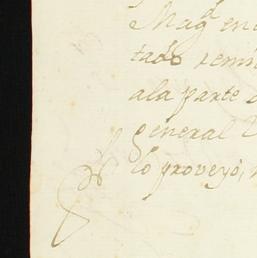 Mag.d en
tado remi
ala parte
general
lo proveyó,